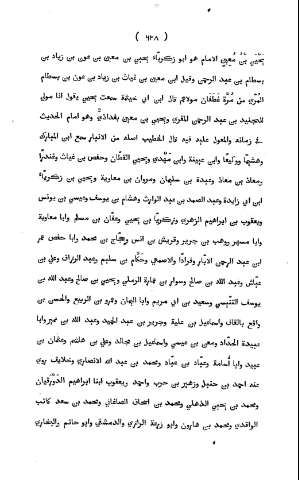 ( ٦٢٨ )
يَحْيَى بْنُ مُعِينٍ الامام هو ابو زكرياء يحيى بن معين بن عون بن زياد بن
بسطام بن عبد الرحمن وقيل ابن معين بن غياث بن زياد بن عون بن بسطام
المُرّىّ من مُرّة غَطَفَان مولاهم قال ابن ابى خيثمة سمعت يحيى يقول انا مولى
للجنيد بن عبد الرحمن المرّى ويحيى بن معين بغدادىّ وهو امام الحديث
فى زمانه والمعول عليه فيه قال الخطيب اصله من الانبار سمع ابن المبارك
وهشيما ووكيعا وابن عيينة وابن مهدى ويحيى القطّان وحفص بن غياث وغندرا
ومعاذ بن معاذ وعبدة بن سليمان ومروان بن معاوية ويحيى بن زكرياء
ابن ابى زايدة وعبد الصمد بن عبد الوارث وهشام بن يوسف وعيسى بن يونس
ويعقوب بن ابراهيم الزهرى وزكرياء بن يحيى وعفّان بن مسلم وابا معاوية
وابا مسهر ووهب بن جرير وقريش بن انس وحجّاج بن محمد وابا حفص عمر
ابن عبد الرحمن الابّار وقرادا والاصمعى وحكّام بن سليم وعبد الرزاق وعلى بن
عيّاش وعبد الله بن صالح وسوار بن عمارة الرملى ويحيى بن صالح وعبد الله بن
يوسف التنيسى وسعيد بن ابى مريم وابا اليمان وعمرو بن الربيع والحسن بن
واقع بالقاف واسماعيل بن علية وجرير بن عبد الحميد وعبد الله بن نمير وابا
عبيدة الحدّاد ومعن بن عيسى واسماعيل بن مجالد وعلى بن هاشم وعفان بن
عبيد وابا أسامة وعباد بن عبّاد ومحمد بن عبد الله الانصارى وخلايف روى
عنه احمد بن حنبل وزهير بن حرب واحمد ويعقوب ابنا ابراهيم الدَّوْرَقيان
ومحمد بن يحيى الذهلى ومحمد بن اسحاق الصاغانى ومحمد بن سعد كاتب
الواقدى ومحمد بن هارون وابو زرعة الرازى والدمشقى وابو حاتم والبخارى